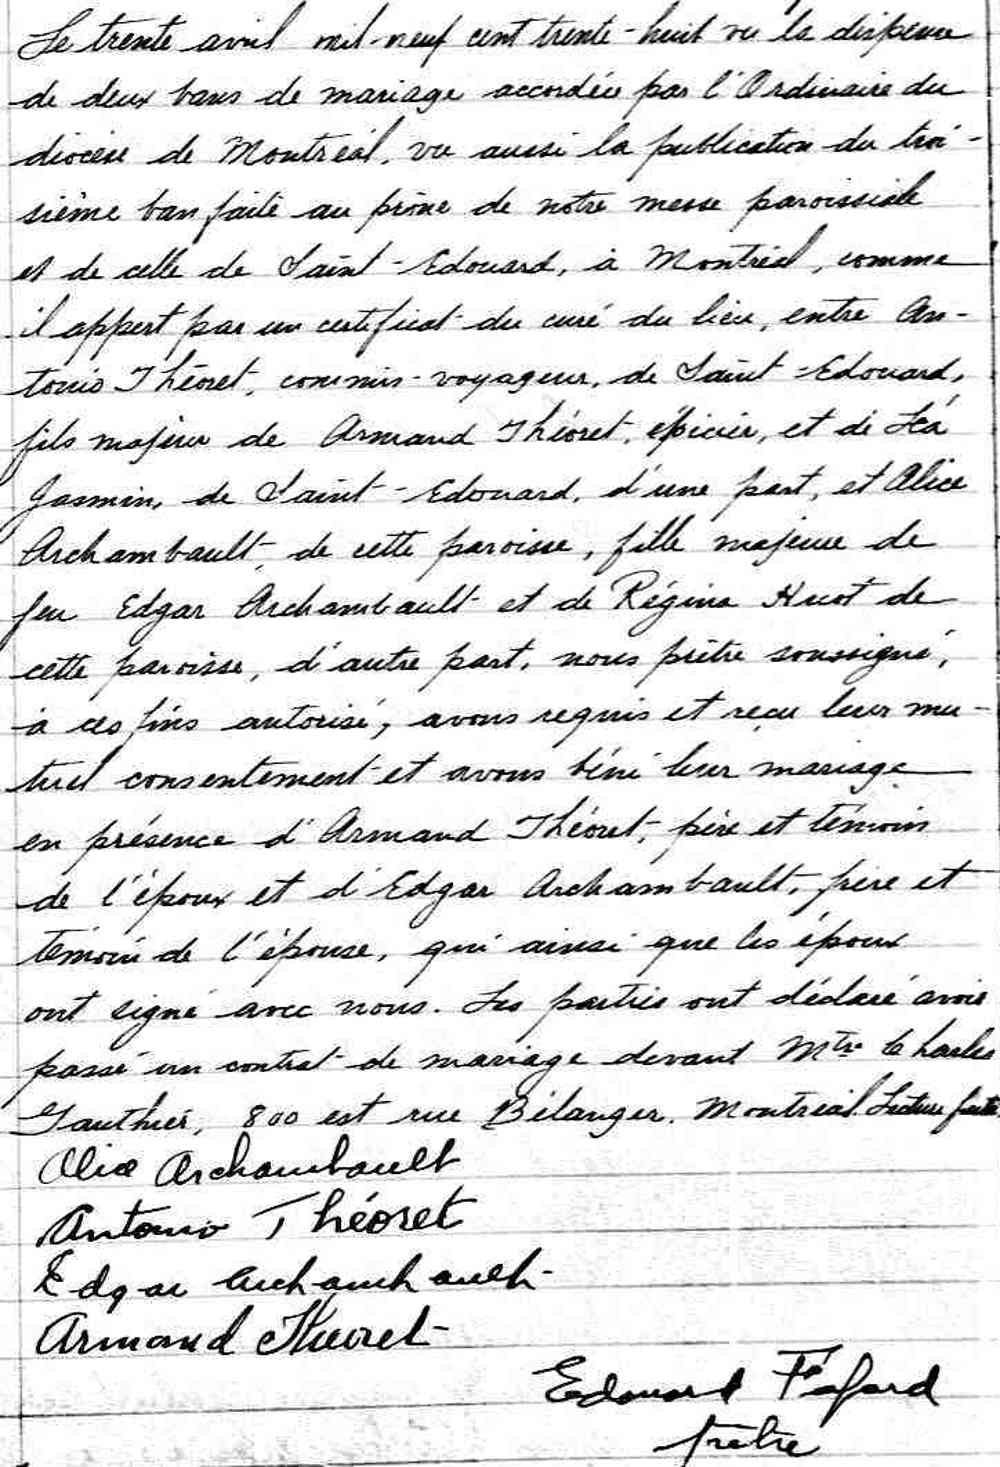 Le trente avril mil-neuf cent trente-huit vu la dispense
de deux bans de mariage accordée par l'Ordinaire du
diocèse de Montréal, vu aussi la publication du troi-
sième ban faite au prône de notre messe paroissiale
et de celle de Saint-Edouard, à Montréal, comme
il appert par un certificat du curé du lieu, entre An-
tonio Théoret, commis-voyageur, de Saint-Edouard,
fils majeur de Armand Théoret, épicier, et de Léa
Jasmin, de Saint-Edouard, d'une part, et Alice
Archambault, de cette paroisse, fille majeure de
feu Edgar Archambault et de Régina Huot de
cette paroisse, d'autre part, nous prêtre soussigné,
à ces fins autorisé, avons requis et reçu leur mu-
tuel consentement et avons béni leur mariage
en présence d'Armand Théoret, père et témoin
de l'époux et d'Edgar Archambault, frère et
témoin de l'épouse, qui ainsi que les époux
ont signé avec nous. Les parties ont déclaré avoir
passé un contrat de mariage devant Mtre Charles
Gauthier, 800 est rue Bélanger, Montréal. Lecture faite.
Alice Archambault
Antonio Théoret
Edgar Archambault
Armand Théoret
Edouard Fafard
prêtre